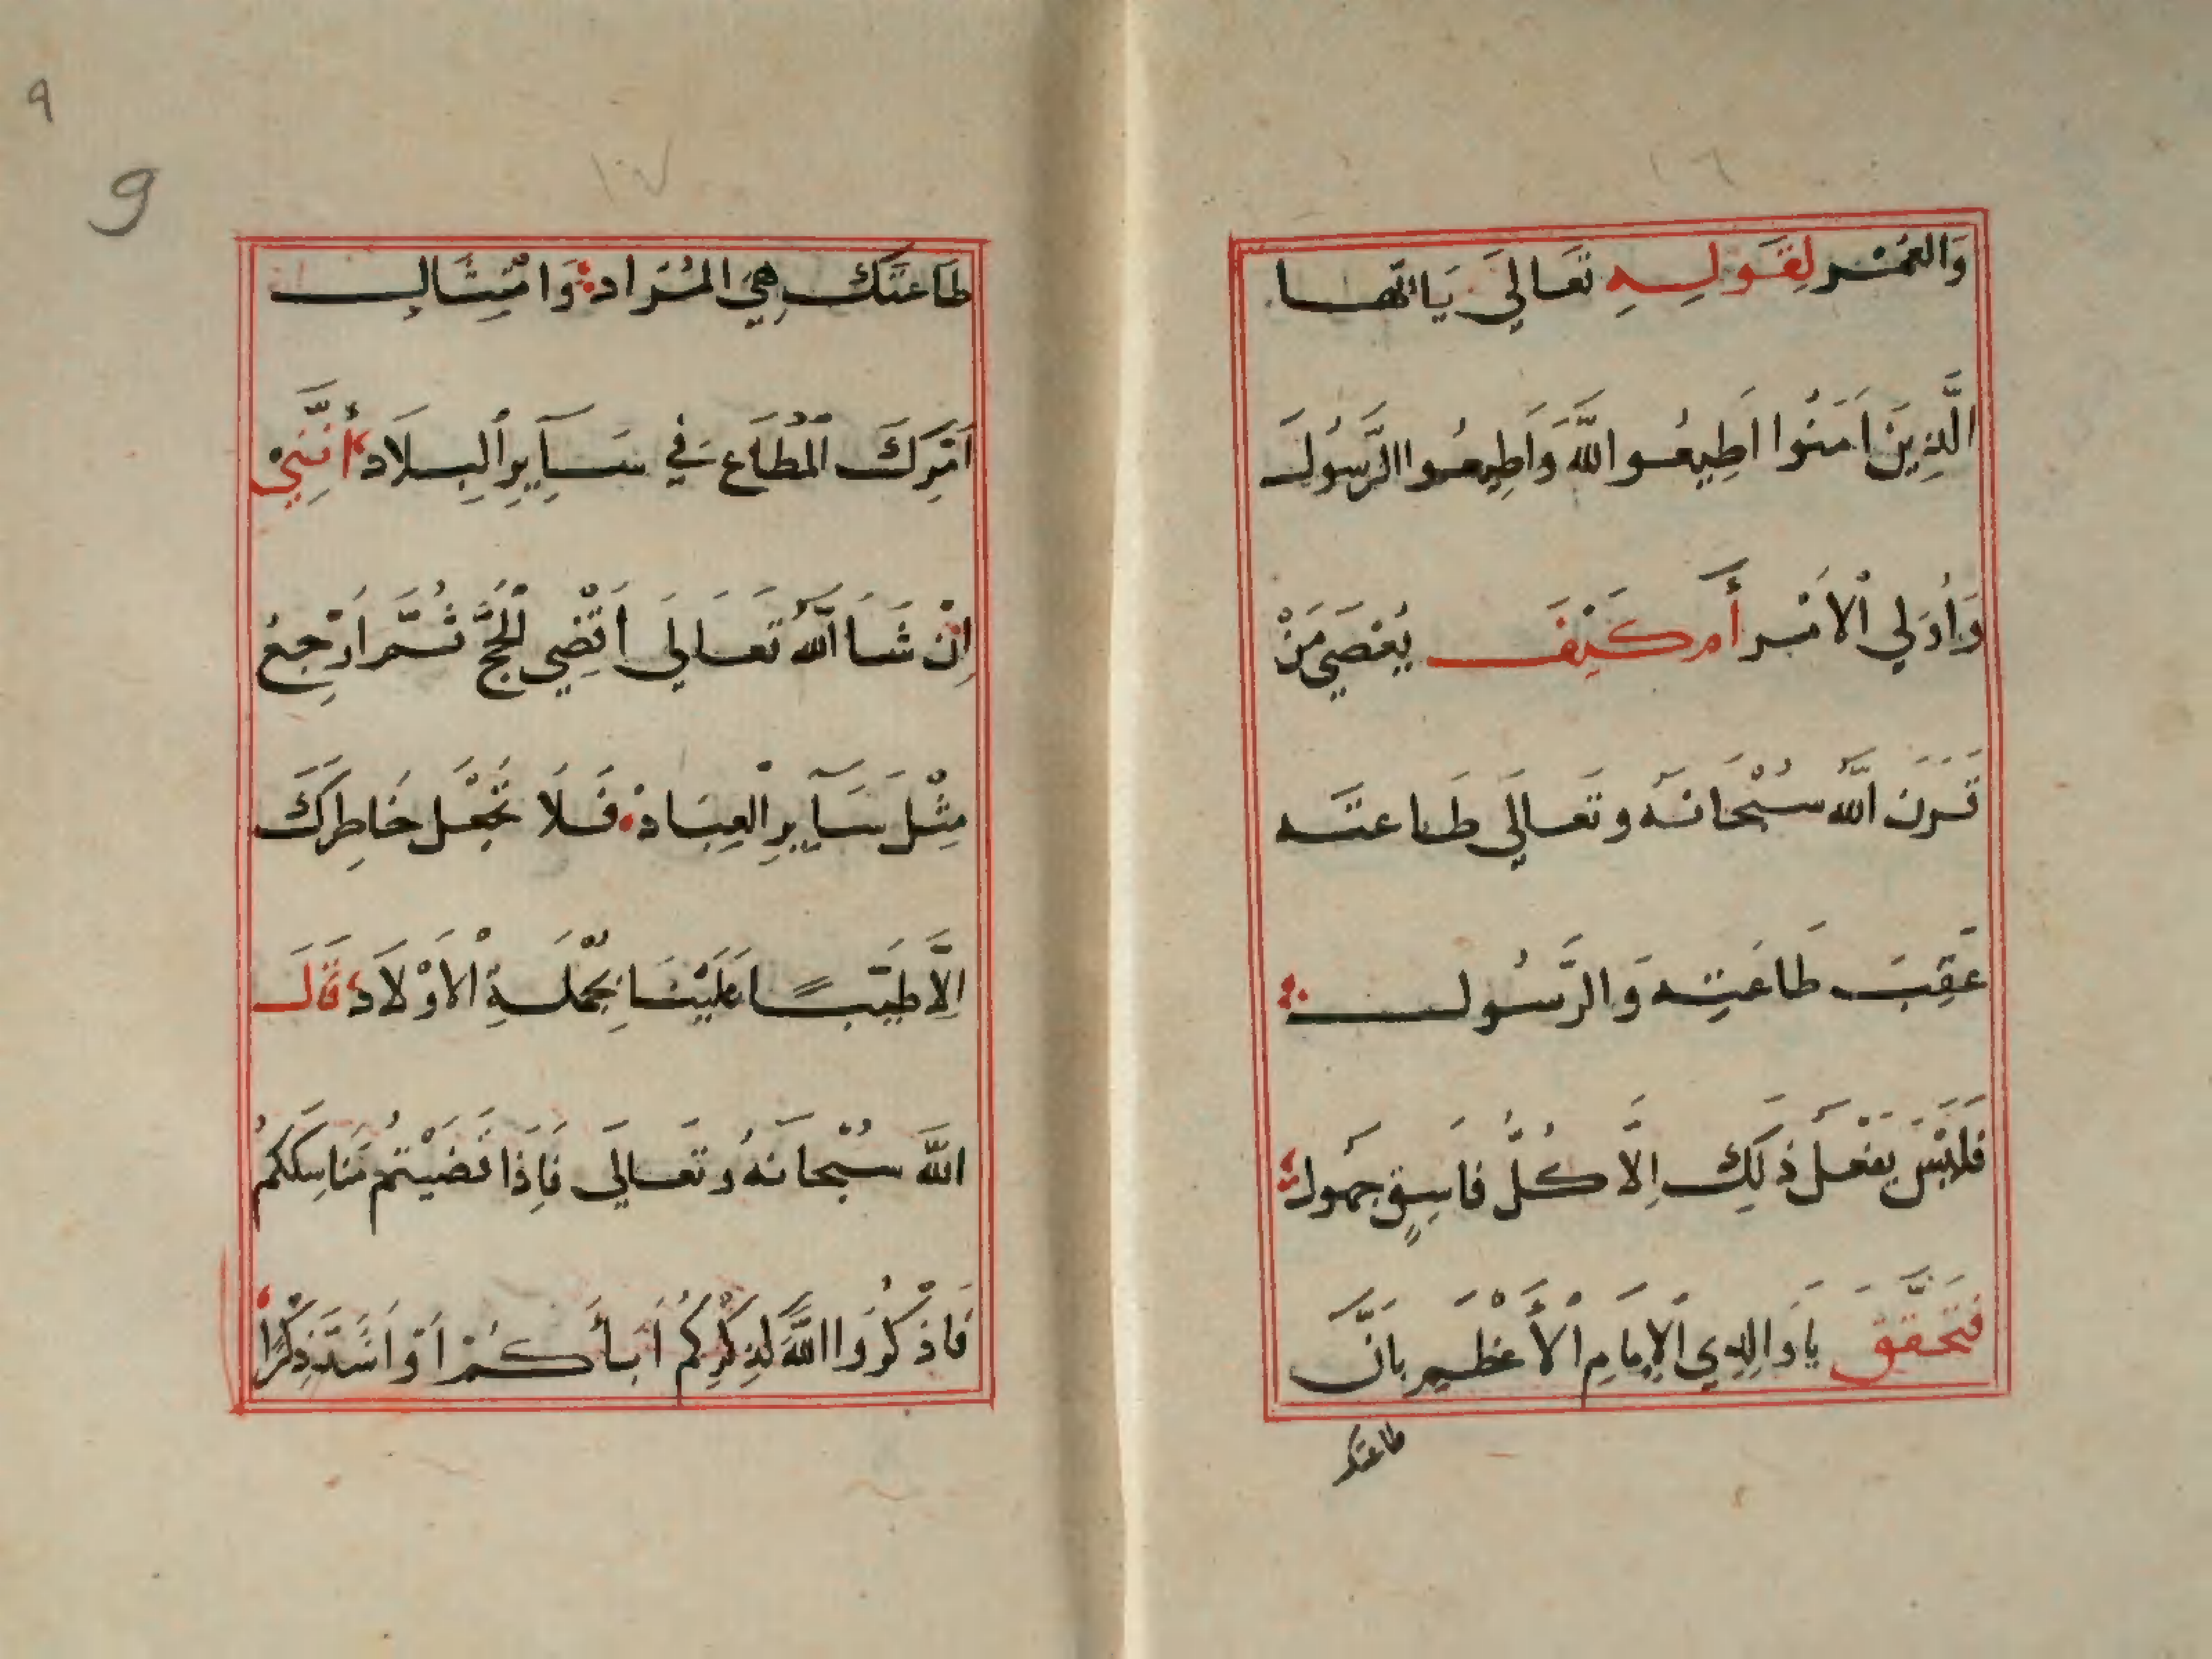 ١٦
وَالعُمْر لِقَولِهِ تَعَالىَ يَاايّهَا
الَّذِينَ اَمَنُوا اَطِيعُوا اللَّهَ وَاَطِيعُوا الرَّسُولَ
وَاُوَلي الْاَمْر أَمْ كَيْفَ يُعْصَي مَنْ
قَرَنَ اللَّهُ سُبْحَانَهُ وتَعَالَي طَاعتَه
عَقِبَ طَاعَتِه وَالرَّسُول
فَلَيْسَ يَفْعَل ذَلِكَ اِلَّا كُلُّ فَاسِقٍ جهَُول
فتَحَقَّقْ يَا وَالِدِي الْاِمَامِ الْأَعْظَم بِاَنَّ
طاعتك
٩
9
١٧
طَاعَتَكَ هِيَ المُرَاد وَامْتِثَالِ
اَمْرِكَ الْمُطَاع فِي سَآيِرِ الْبِلَاد أَنَّنِي
اِنْ شَا اللَّهُ تَعَالَي اَقْضِي الْحَجَّ ثُمَّ اَرْجِعُ
مِثْلَ سَآيِرِ الْعِبَاد فَلَا تَجْعَل خَاطِرَكَ
اِلَّا طَيّبًا عَلَيْنَا بِجُمْلَةِ الْاَوْلَاد قَالَ
اللَّه سُبْحَانَهُ وتَعَالَي فَاِذَا قَضَيْتُم مَنَاسِكَكُمُ
فَاذْكُرُوا اللَّهَ لذِكْرِكُمُ اَبَأَكُمْ اَوْ اَشَدَّ ذِكْرًا